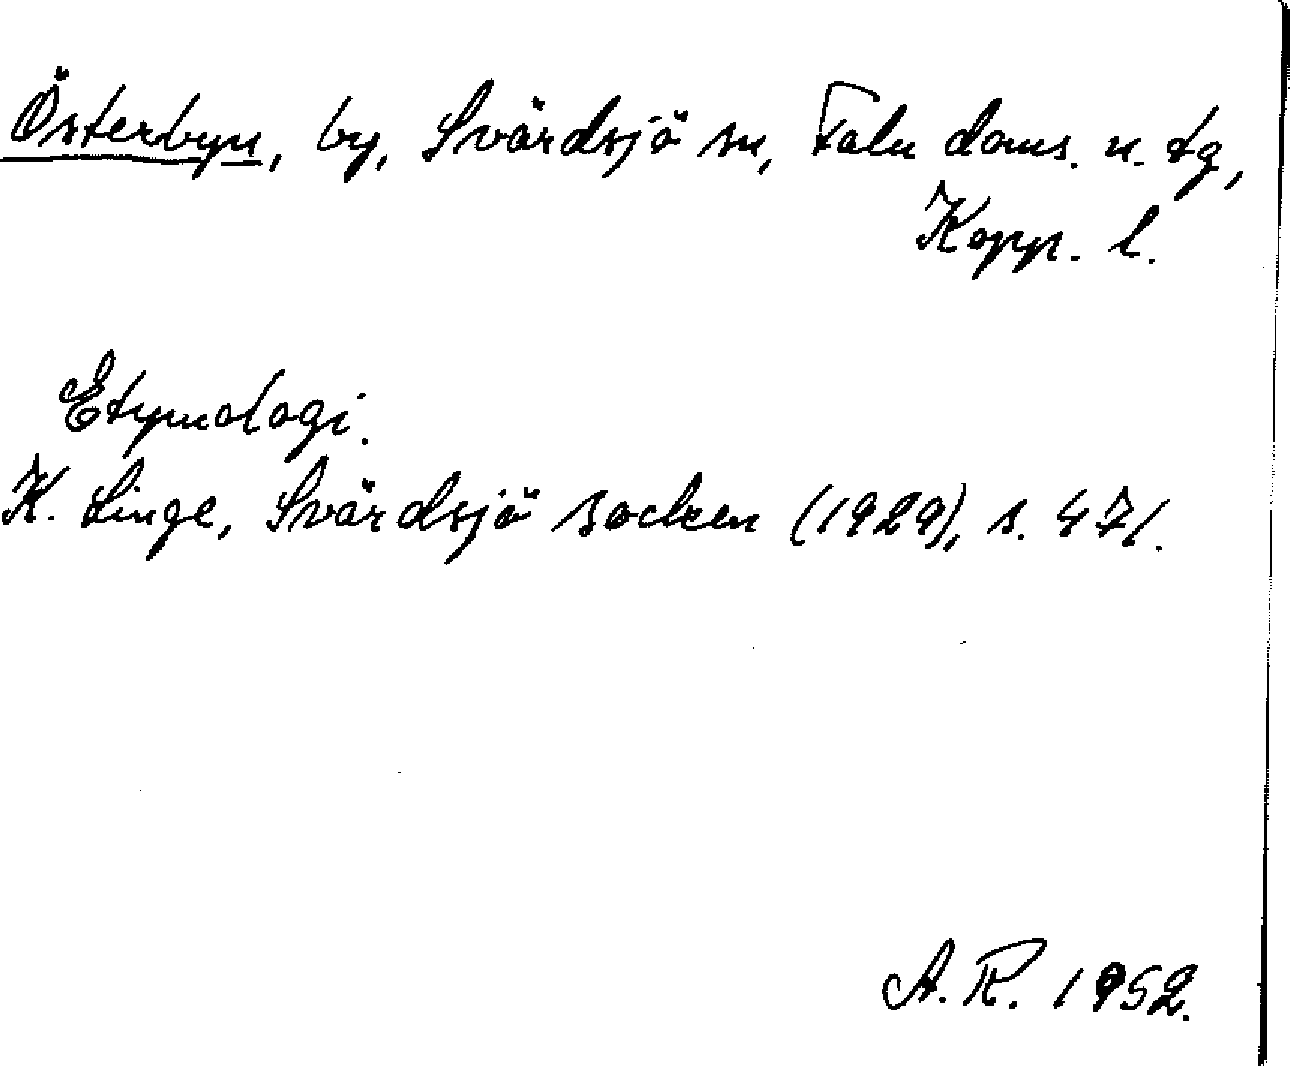 Österbyn, by, Svärdsjö sn, Falu doms. n. tg,
Kopp. l.
Etymologi.
K. Linge, Svärdsjö socken (1929), s. 471.
A. R. 1952.